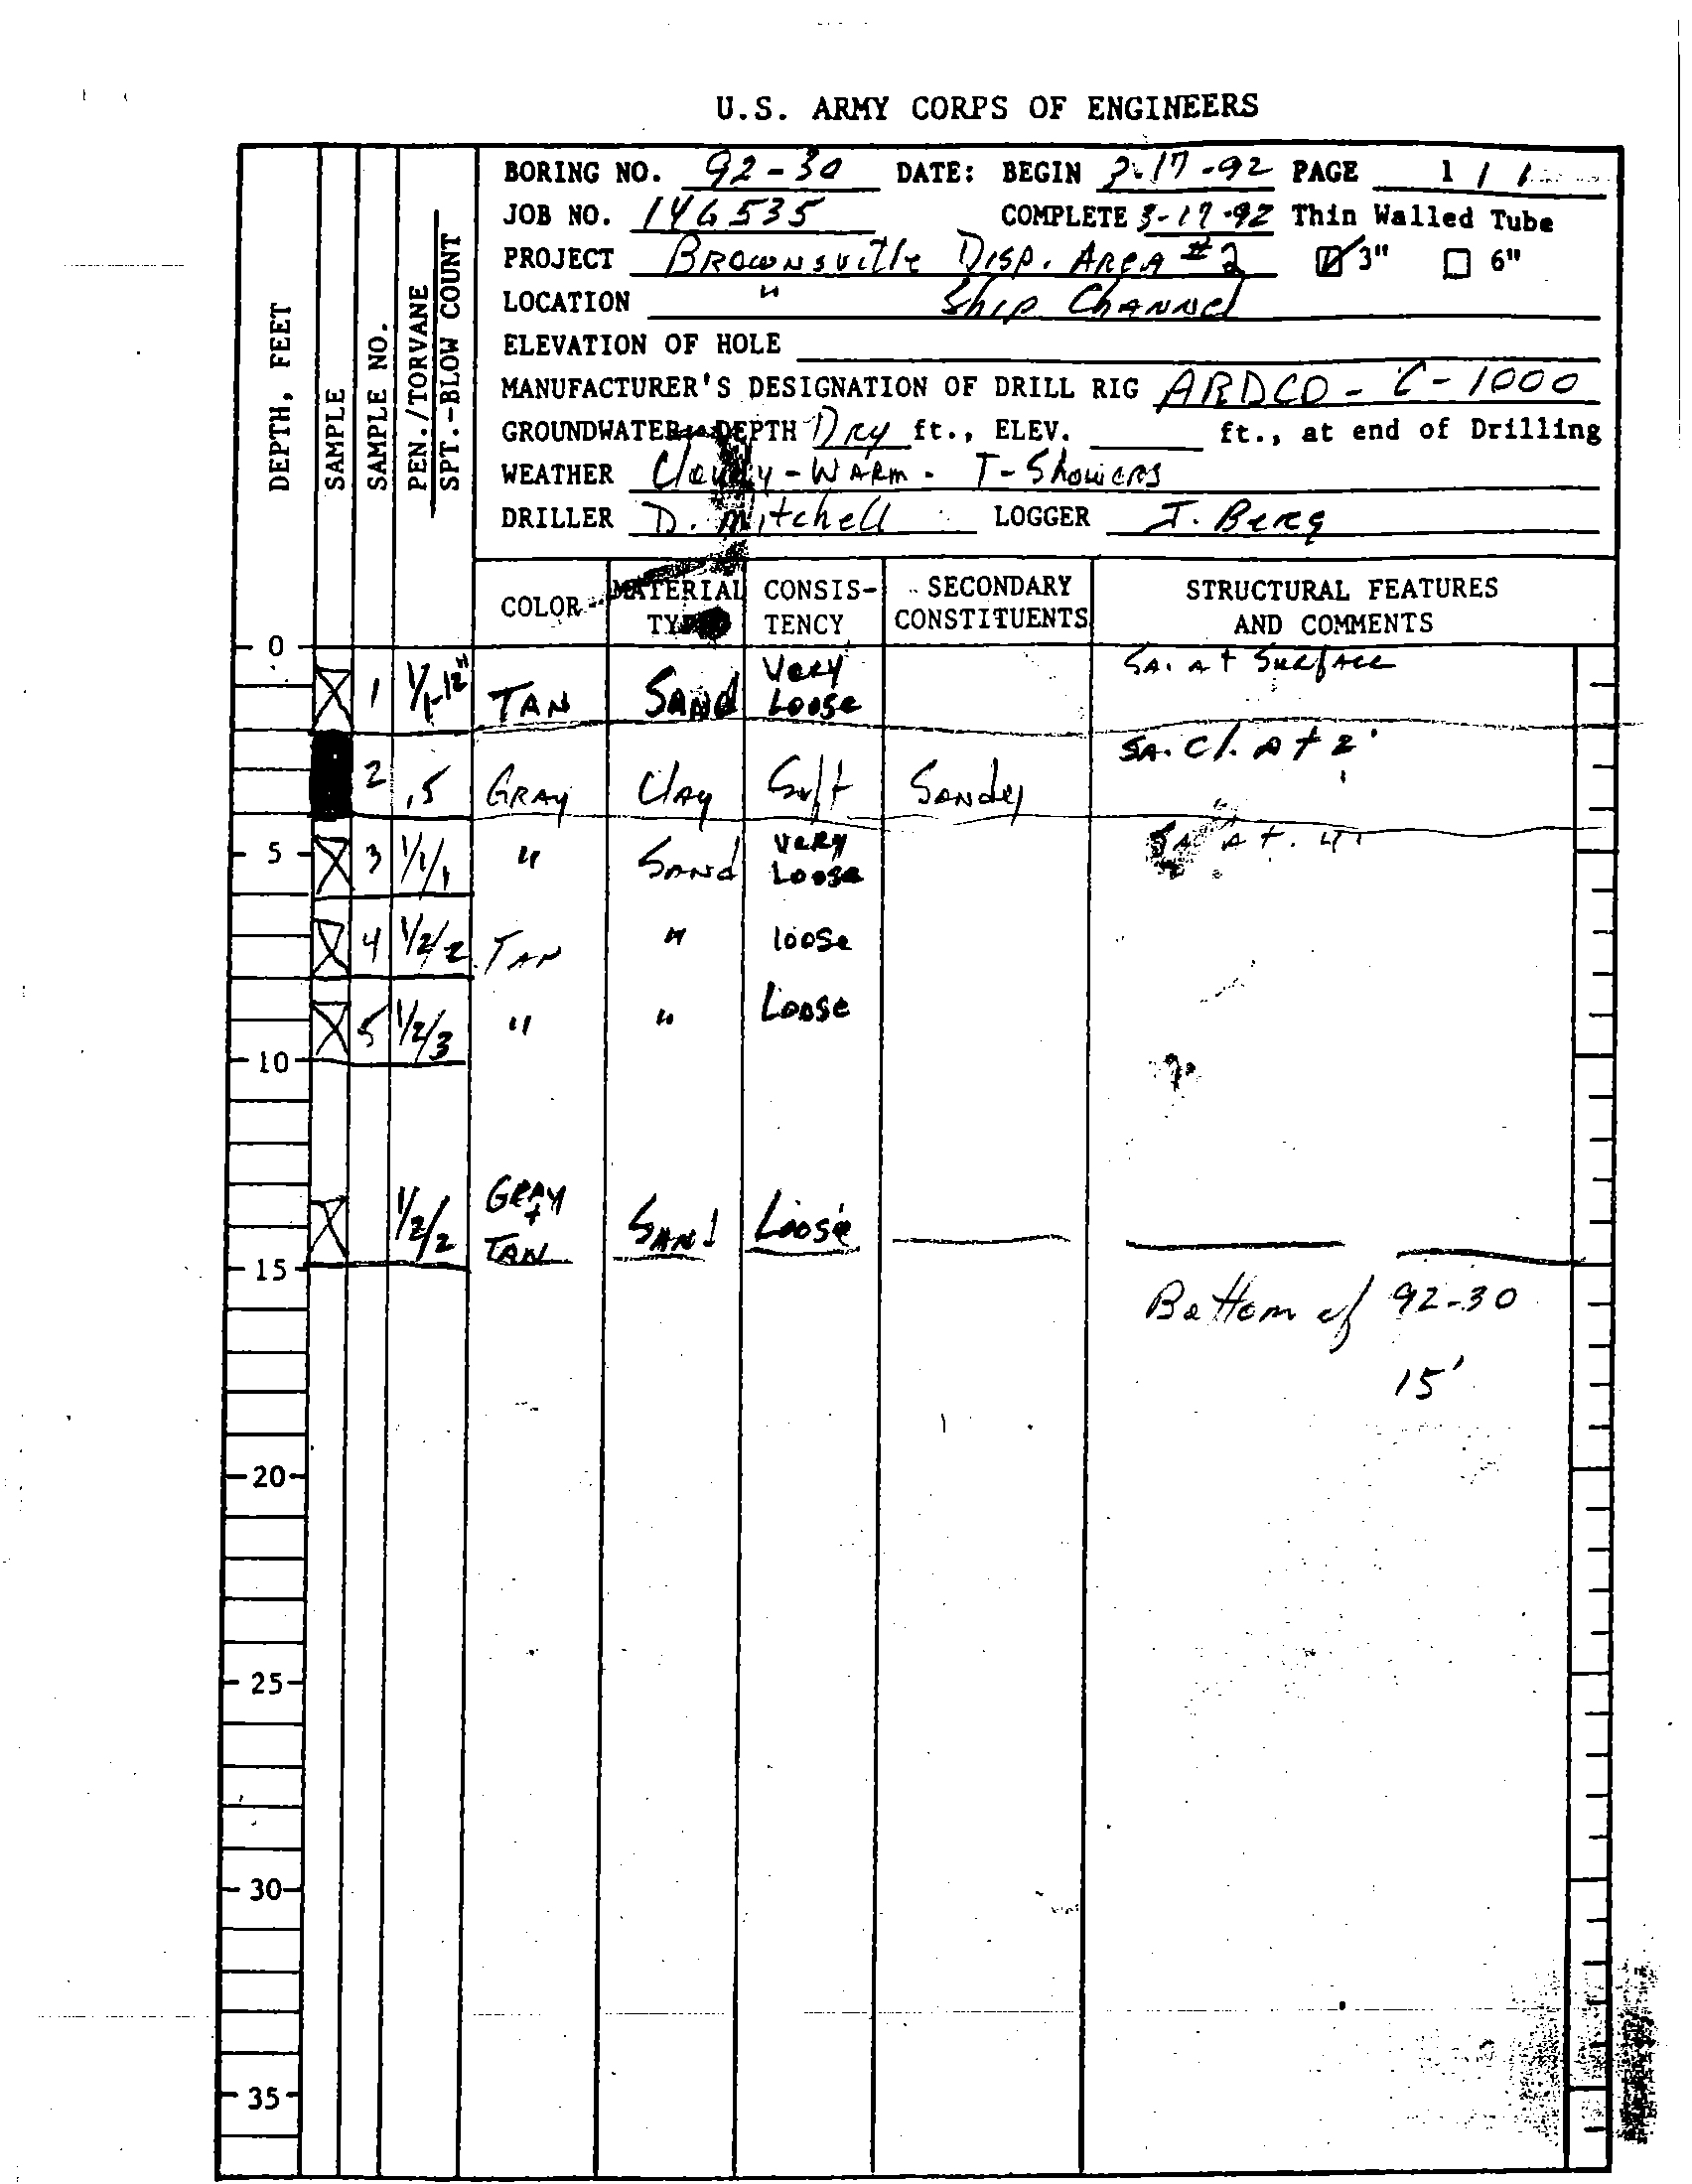 U.S. ARMY CORPS OF ENGINEERS
BORING NO. 92-30 DATE: BEGIN 3-17-92 PAGE 1 / 1
JOB NO. 146535 COMPLETE 3-17-92 Thin Walled Tube
PROJECT BROWNSVille Disp. AREA #2 3" 6"
LOCATION " Ship Channel
ELEVATION OF HOLE
MANUFACTURER'S DESIGNATION OF DRILL RIG ARDCO - C-1000
GROUNDWATER DEPTH DRY ft., ELEV. ft., at end of Drilling
WEATHER Cloudy - WARM - T-Showers
DRILLER D. Mitchell LOGGER J. Berg
DEPTH, FEET
SAMPLE
SAMPLE NO.
PEN./TORVANE
SPT.-BLOW COUNT
COLOR MATERIAL TYPE CONSIS-TENCY SECONDARY CONSTITUENTS STRUCTURAL FEATURES AND COMMENTS
0
1 1/1-12" TAN SAND Very Loose SA. At Surface
2 .5 GRAY Clay Soft Sandy SA. Cl. At 2'
5 3 1/1/1 " SAND Very Loose SA At. 4'
4 1/2/2 TAN " loose
5 1/2/3 " " Loose
10
1/2/2 GRAY + TAN SAND Loose
15
Bottom of 92-30
15'
20
25
30
35